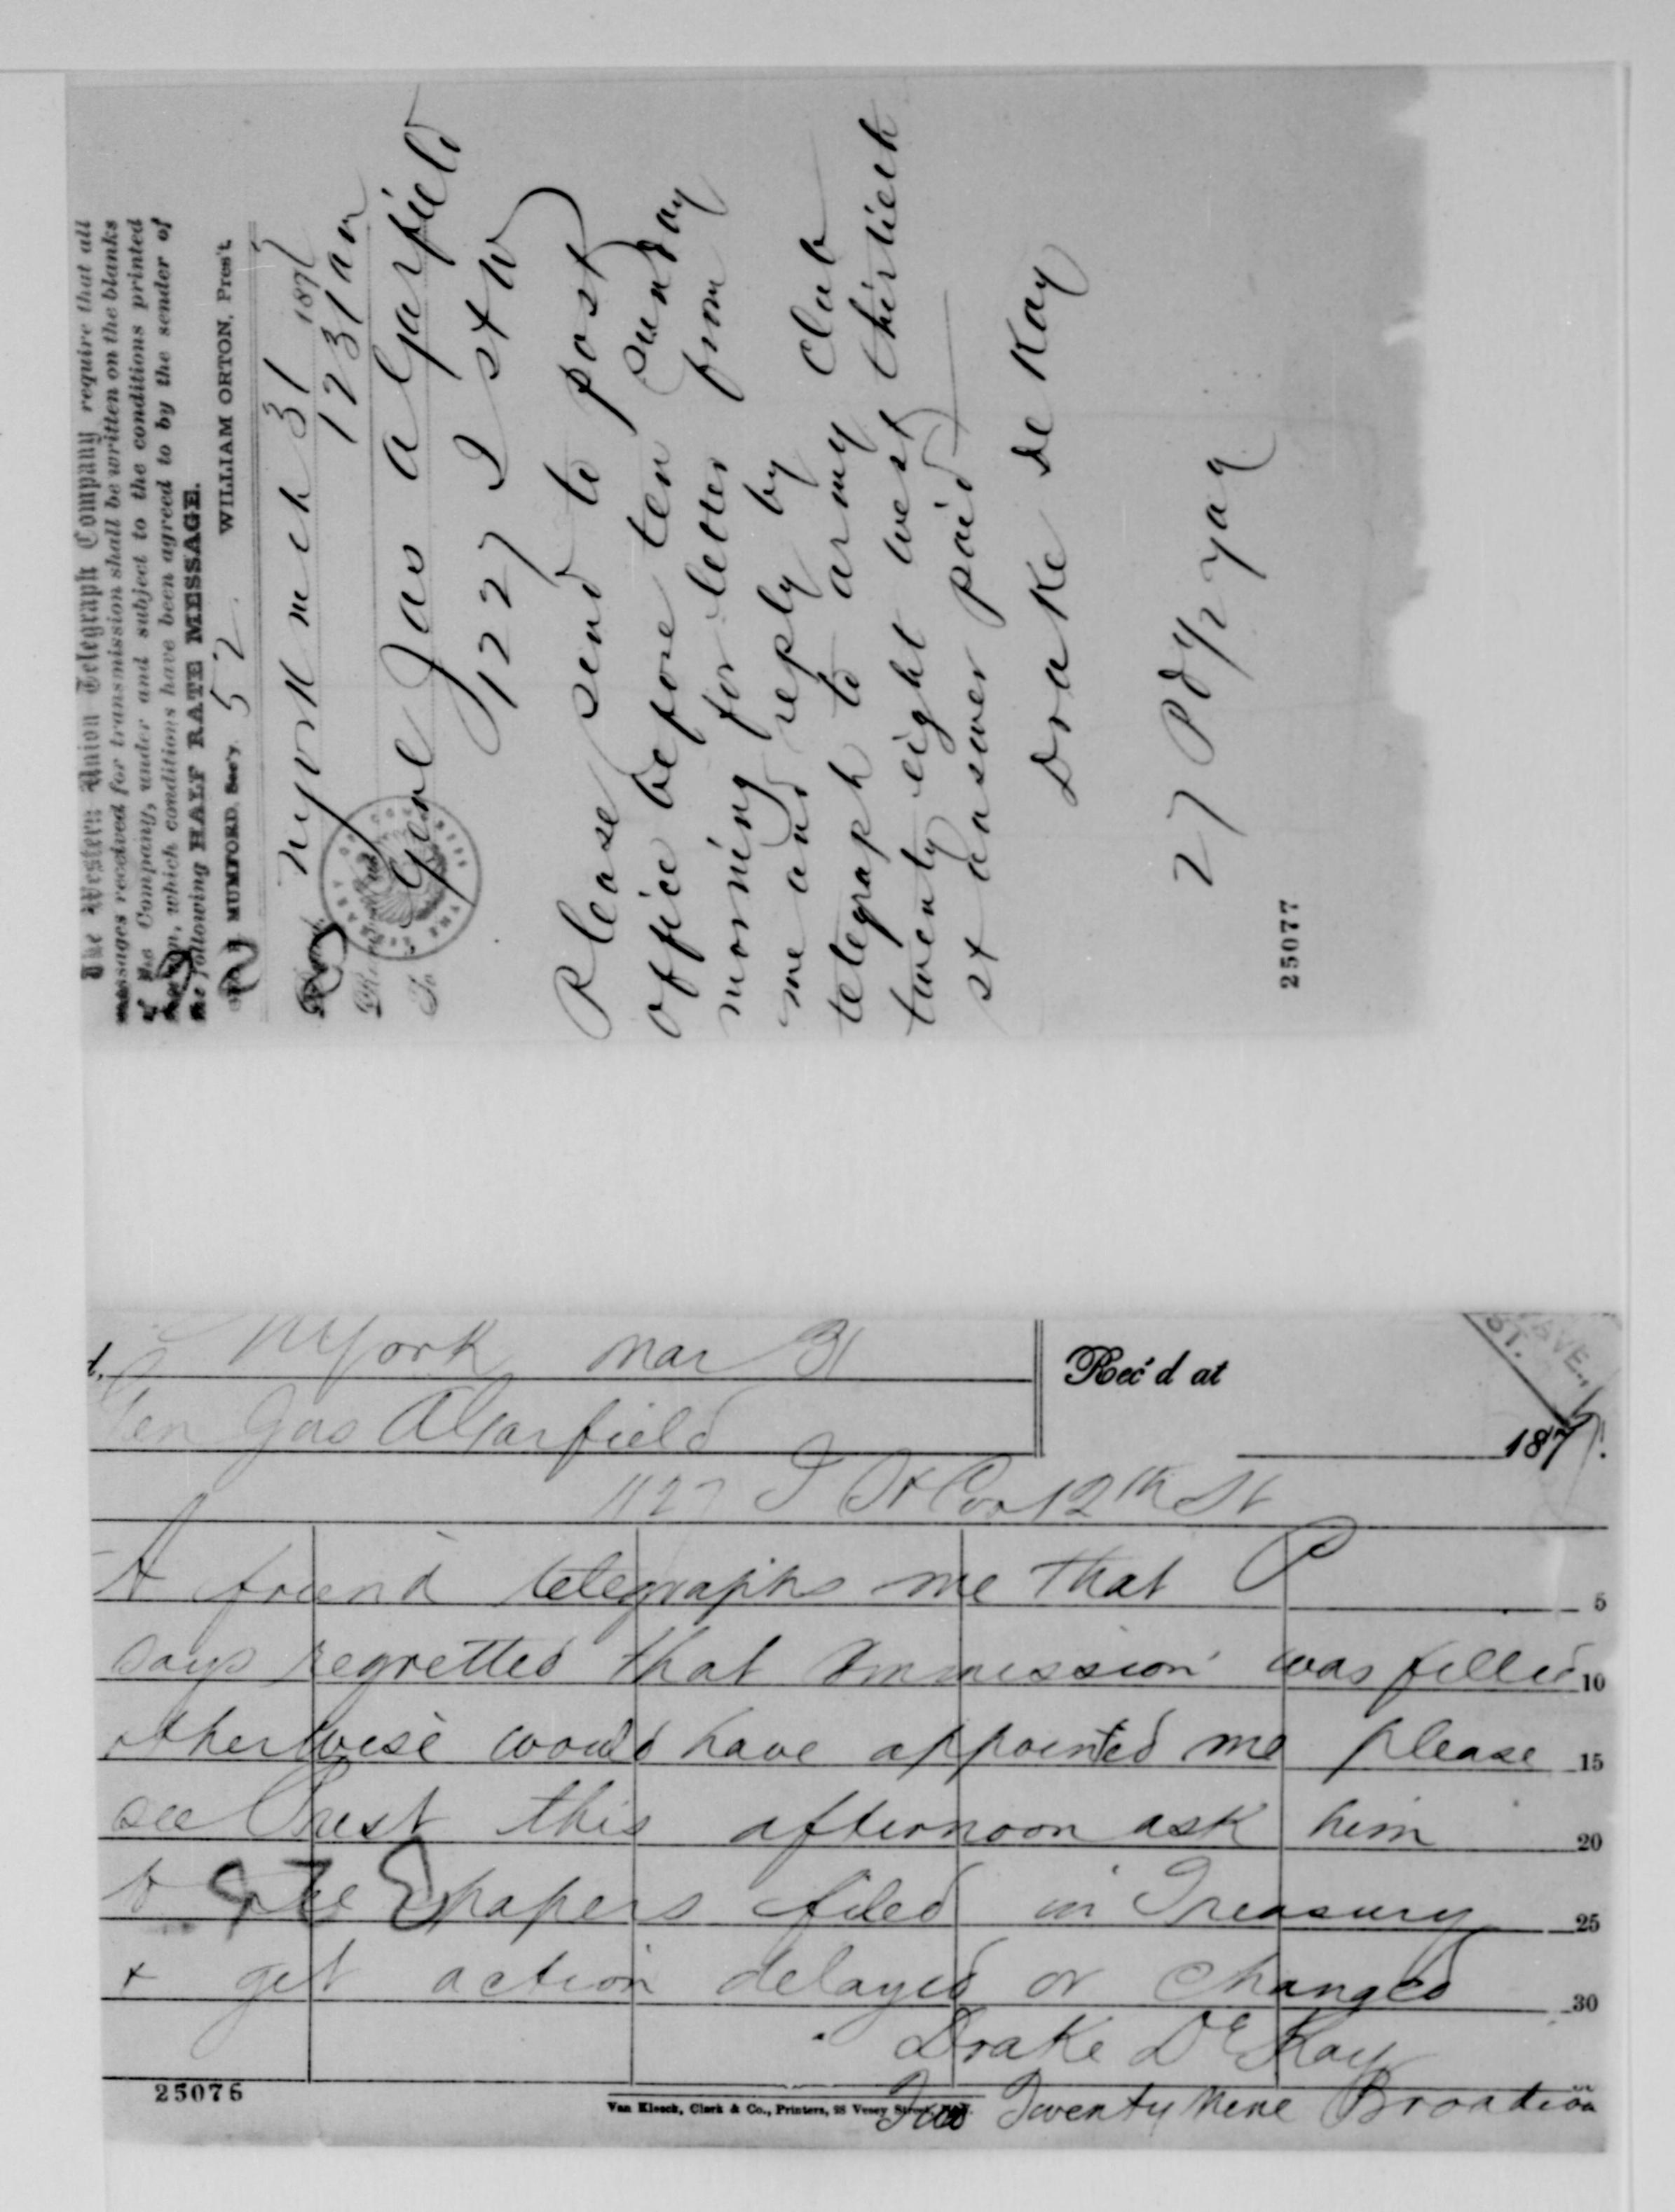 The Western Union Telegraph Company require that all
messages received for transmission shall be written on the blanks
of the Company, under and subject to the conditions printed
which conditions have been agreed to by the sender of
the following HALF RATE MESSAGE.
MUMFORD, Sec'y. 52 WILLIAM ORTON, Pres't.
NYork Mch 31 1877
1231 am
To Genl Jas A Garfield
1227 I st W
Please send to post
office before ten Sunday
morning for letter from
me and reply by
telegraph to army Club
twenty eight west thirtieth
st answer paid
Drake De Kay
27 Pd 1/2 yaq
25077
NYork Mar 31
Rec'd at
ST. AVE.,
Gen Jas A Garfield
187
1127 I St Cor 12th St
A friend telegraphs me that P
5
says regretted that Ommission was filled
10
otherwise would have appointed me please
15
see Prest this afternoon ask him
20
to papers filed in Treasury
25
+ get action delayed or changed
30
Drake DE Kay
25076
Van Kleeck, Clark & Co., Printers, 28 Vesey Street, N.Y.
Two Twenty Nine Broadwa